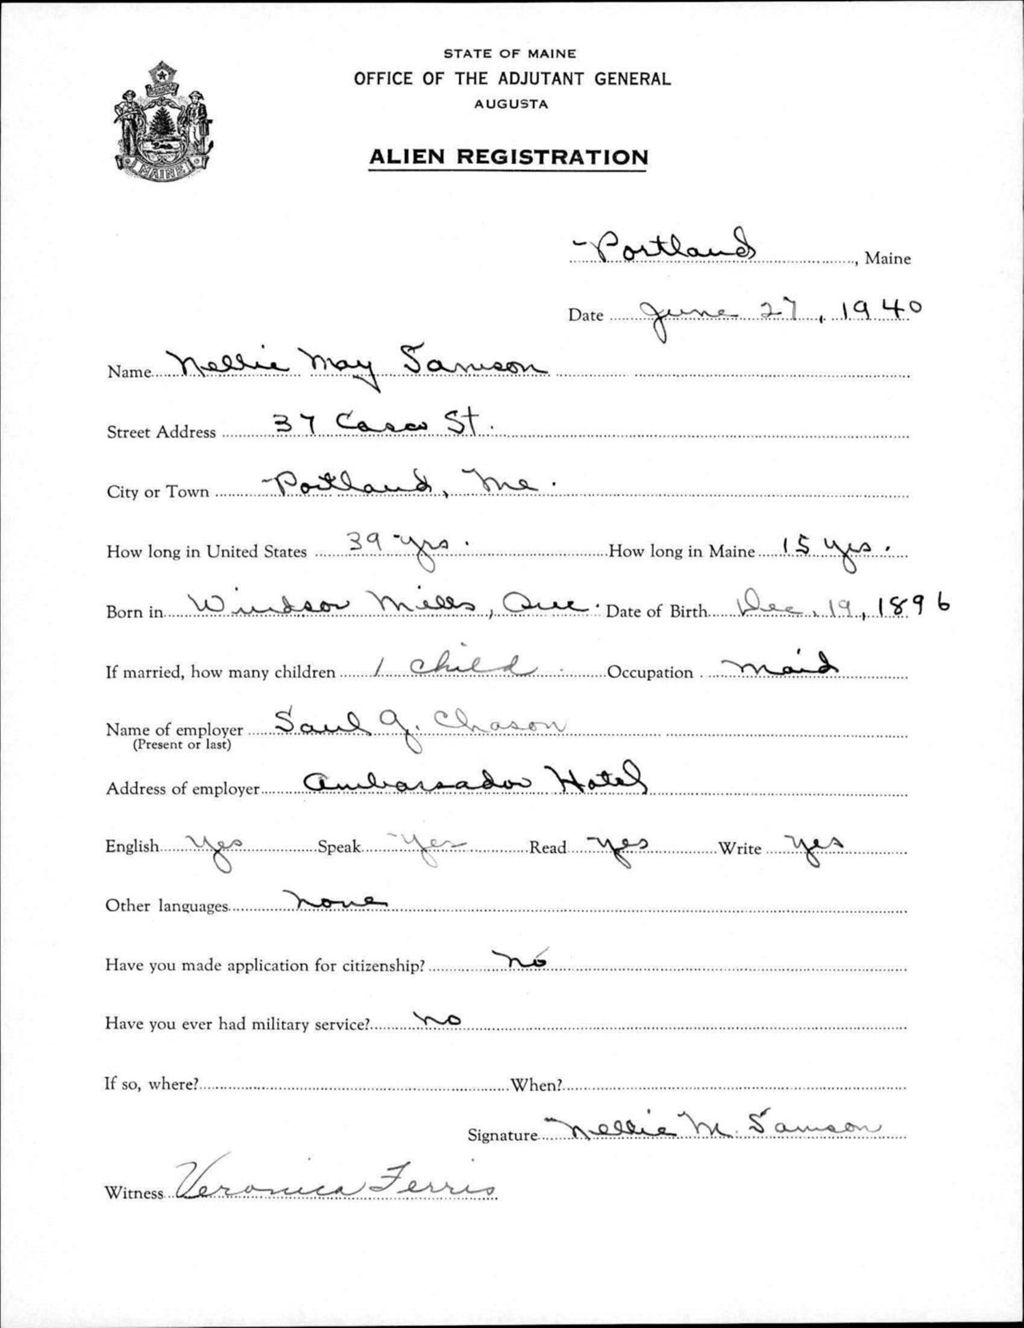 STATE OF MAINE
OFFICE OF THE ADJUTANT GENERAL
AUGUSTA
ALIEN REGISTRATION
MAINE
Portland, Maine
Date June 27, 1940
Name Nellie May Samson
Street Address 37 Casco St.
City or Town Portland, Me.
How long in United States 39 yrs. How long in Maine 15 yrs.
Born in Windsor Mills, Que. Date of Birth Dec. 19, 1896
If married, how many children 1 child Occupation Maid
Name of employer Saul G. Chason
(Present or last)
Address of employer Ambassador Hotel
English Yes Speak Yes Read Yes Write Yes
Other languages None
Have you made application for citizenship? No
Have you ever had military service? No
If so, where? When?
Signature Nellie M. Samson
Witness Veronica Ferris